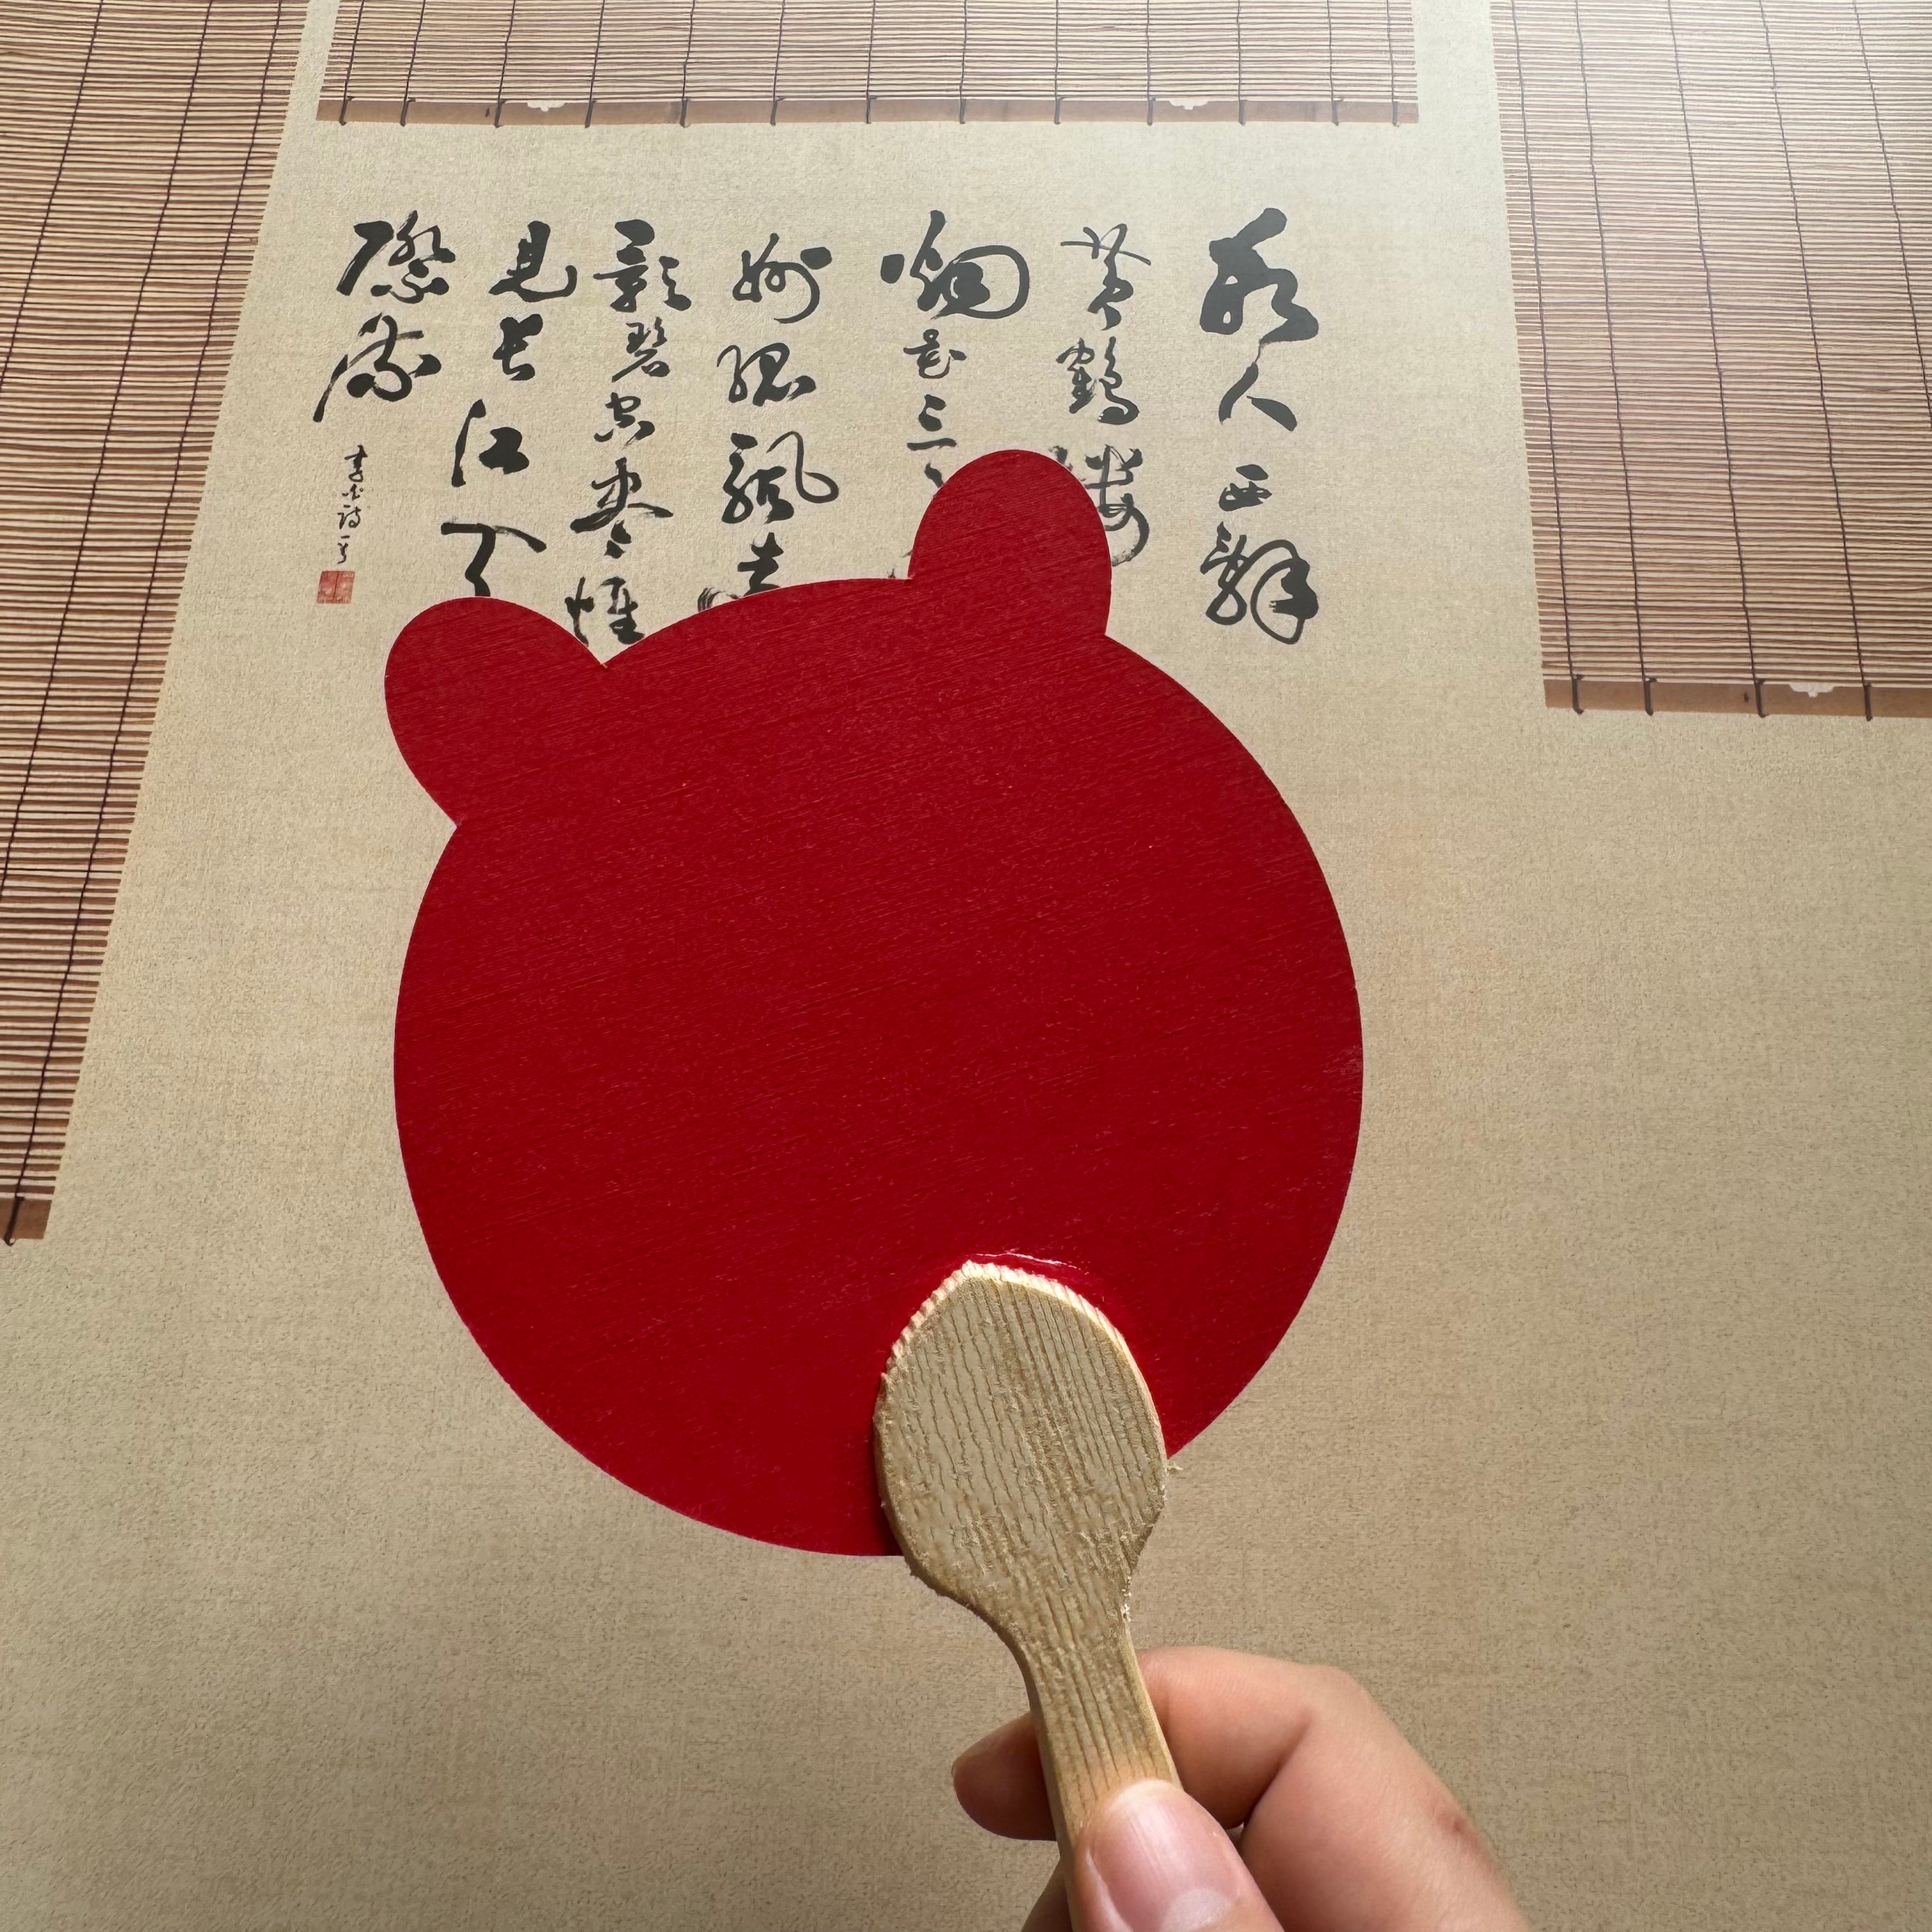 故人西辭
黄鶴樓
烟花三
州孤帆遠
影碧空盡惟
見長江天
際流
李白詩一首